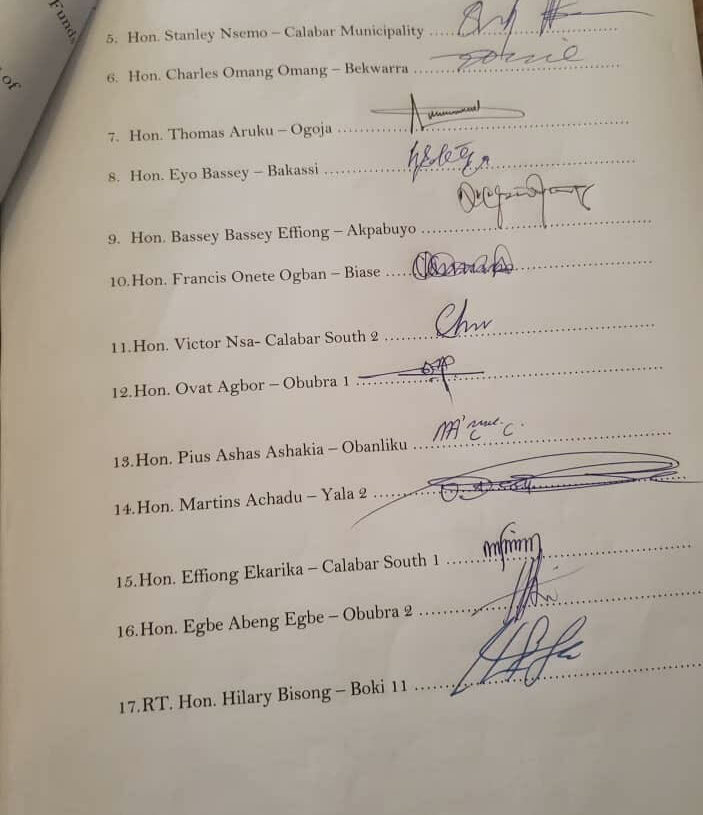 Funds
of
5. Hon. Stanley Nsemo – Calabar Municipality
6. Hon. Charles Omang Omang – Bekwarra
7. Hon. Thomas Aruku – Ogoja
8. Hon. Eyo Bassey – Bakassi
9. Hon. Bassey Bassey Effiong – Akpabuyo
10. Hon. Francis Onete Ogban – Biase
11. Hon. Victor Nsa- Calabar South 2
12. Hon. Ovat Agbor – Obubra 1
13. Hon. Pius Ashas Ashakia – Obanliku
14. Hon. Martins Achadu – Yala 2
15. Hon. Effiong Ekarika – Calabar South 1
16. Hon. Egbe Abeng Egbe – Obubra 2
17. RT. Hon. Hilary Bisong – Boki 11